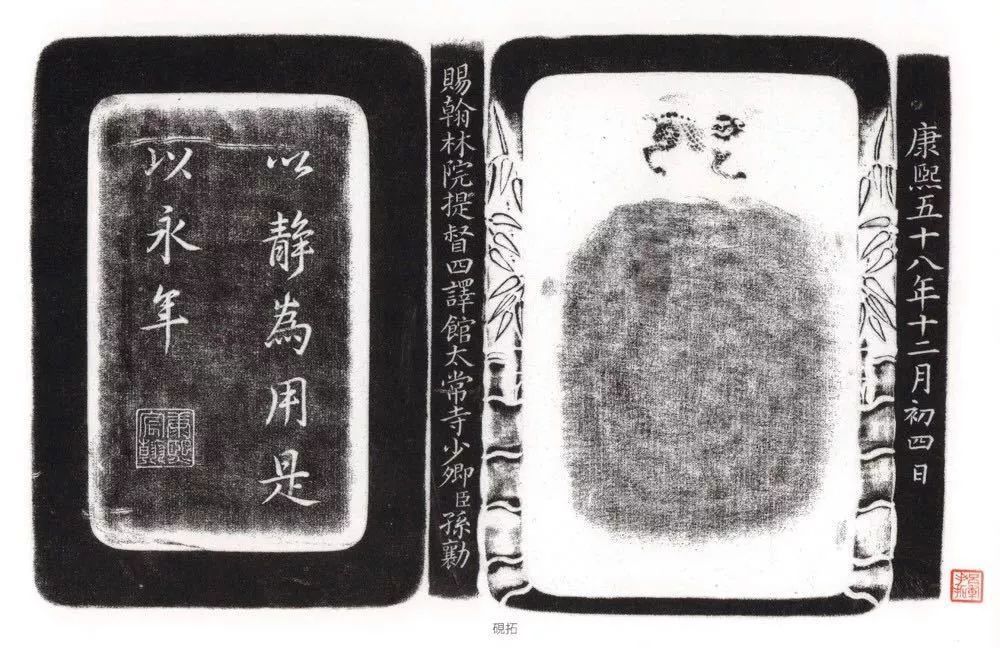 康熙五十八年十二月初四日
賜翰林院提督四譯館太常寺少卿臣孫勷
以靜為用是
以永年
康熙
宸翰
硯拓